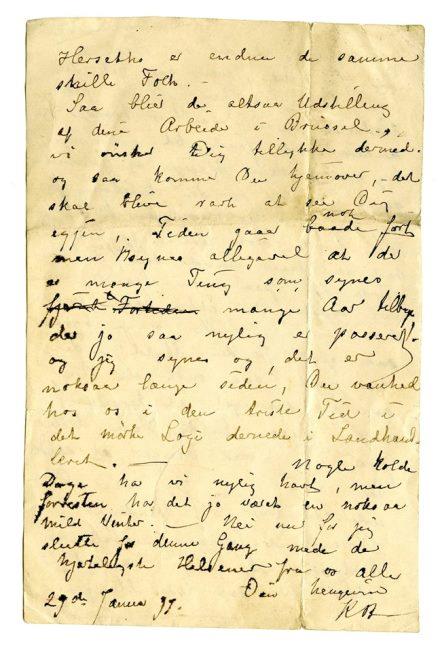 er endnu de samme
skille Folk. –
Saa blir der altsaa Udstilling
af dine Arbeide i Brüssel. –
vi ønsker Dig tillykke dermed.
og saa komme Du hjemover, – det
skal blive rart at see Dig
igjen, Tiden gaar nok baade fort
men jeg synes alligevel at de
er mange Ting som synes
mange Aar tilbage
der jo saa nylig er passeret. –
og jeg synes og det er
noksaa længe siden, Du
hos os i den triste Tid i
det mørke Logi dernede i
– Nogle kolde
Dage har vi nylig havt, men
forresten har det jo været en noksaa
mild Vinter. – Nei nu for jeg
slutte for denne Gang med de
hjerteligste Hilsener fra os alle
Din hengivne
KB
29de Januar 99.